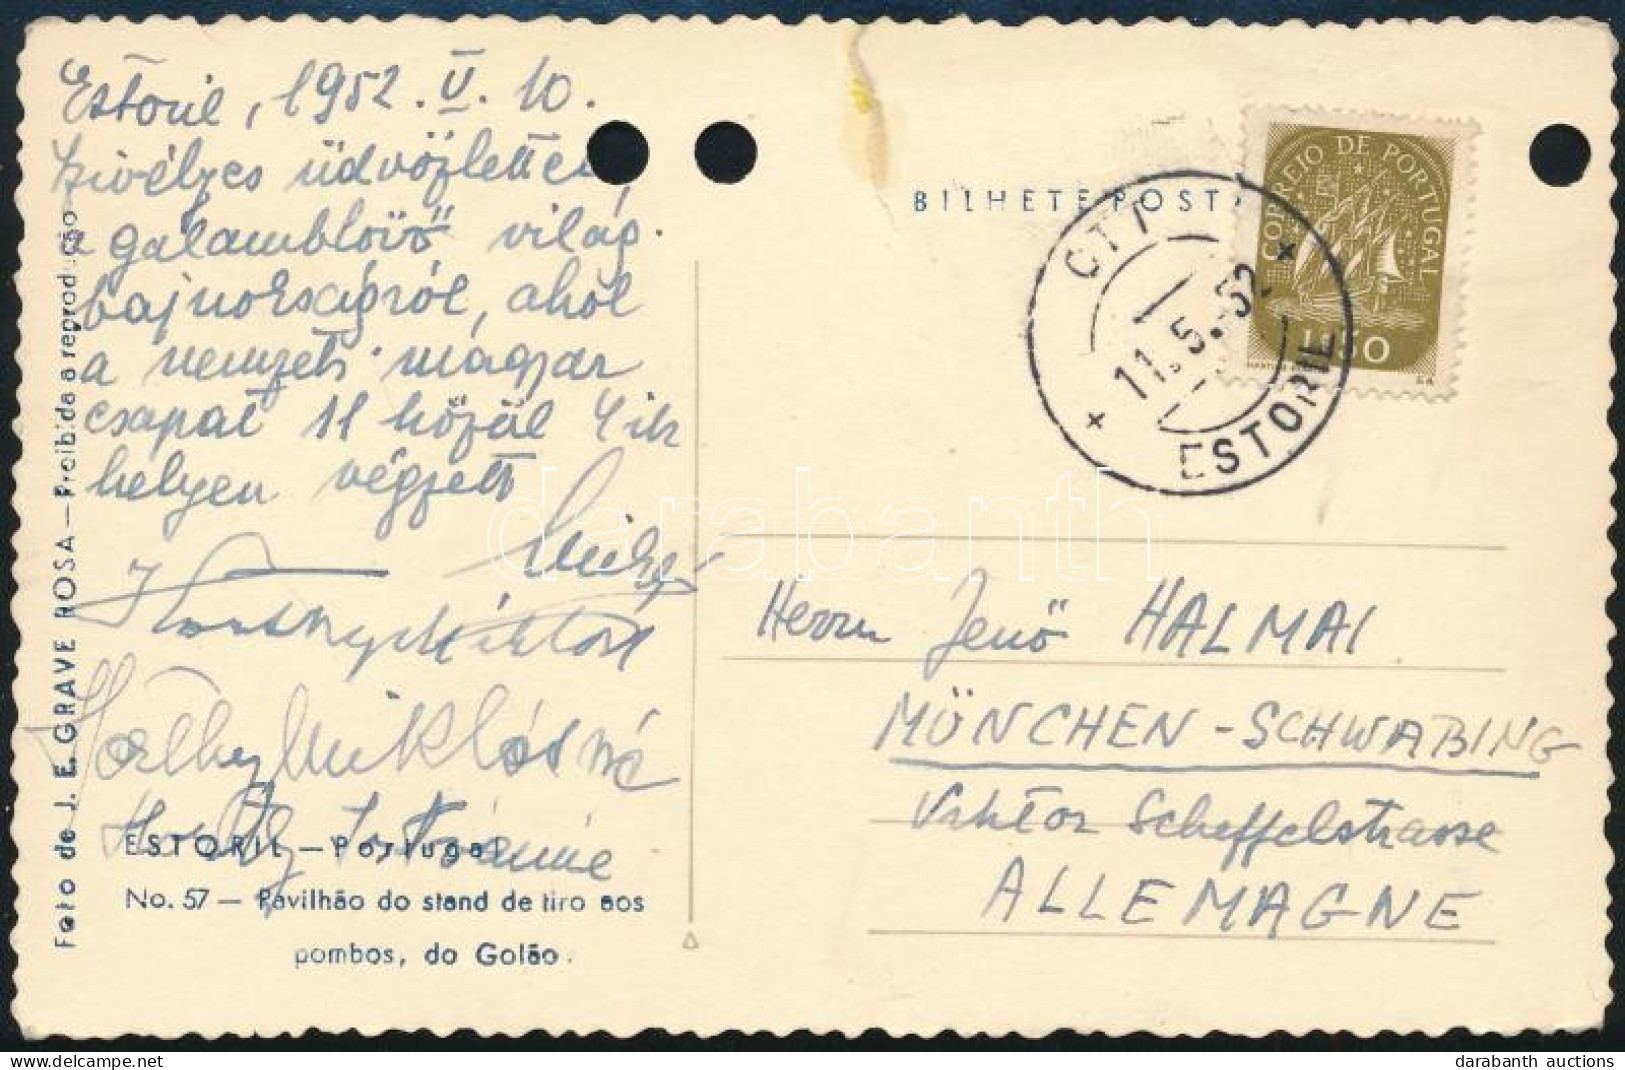 Estoril, 1952. V. 10.
Szivélyes üdvözlettel,
a galamblövő világ-
bajnokságról, ahol
a nemzeti magyar
csapat 11 közül 4ik
helyen végzett
Horthy Miklósné
Horthy Istvánné
ESTORIL — Portugal
No. 57 — Pavilhão do stand de tiro aos
pombos, do Golão.
Foto de J. E. GRAVE ROSA — Proibida a reprodução
BILHETE POST
CORREIO DE PORTUGAL
1$50
CTT
11.5.52
ESTORIL
Herrn Jenő HALMAI
MÜNCHEN - SCHWABING
Viktor Scheffelstrasse
ALLEMAGNE
darabanth
darabanth auctions